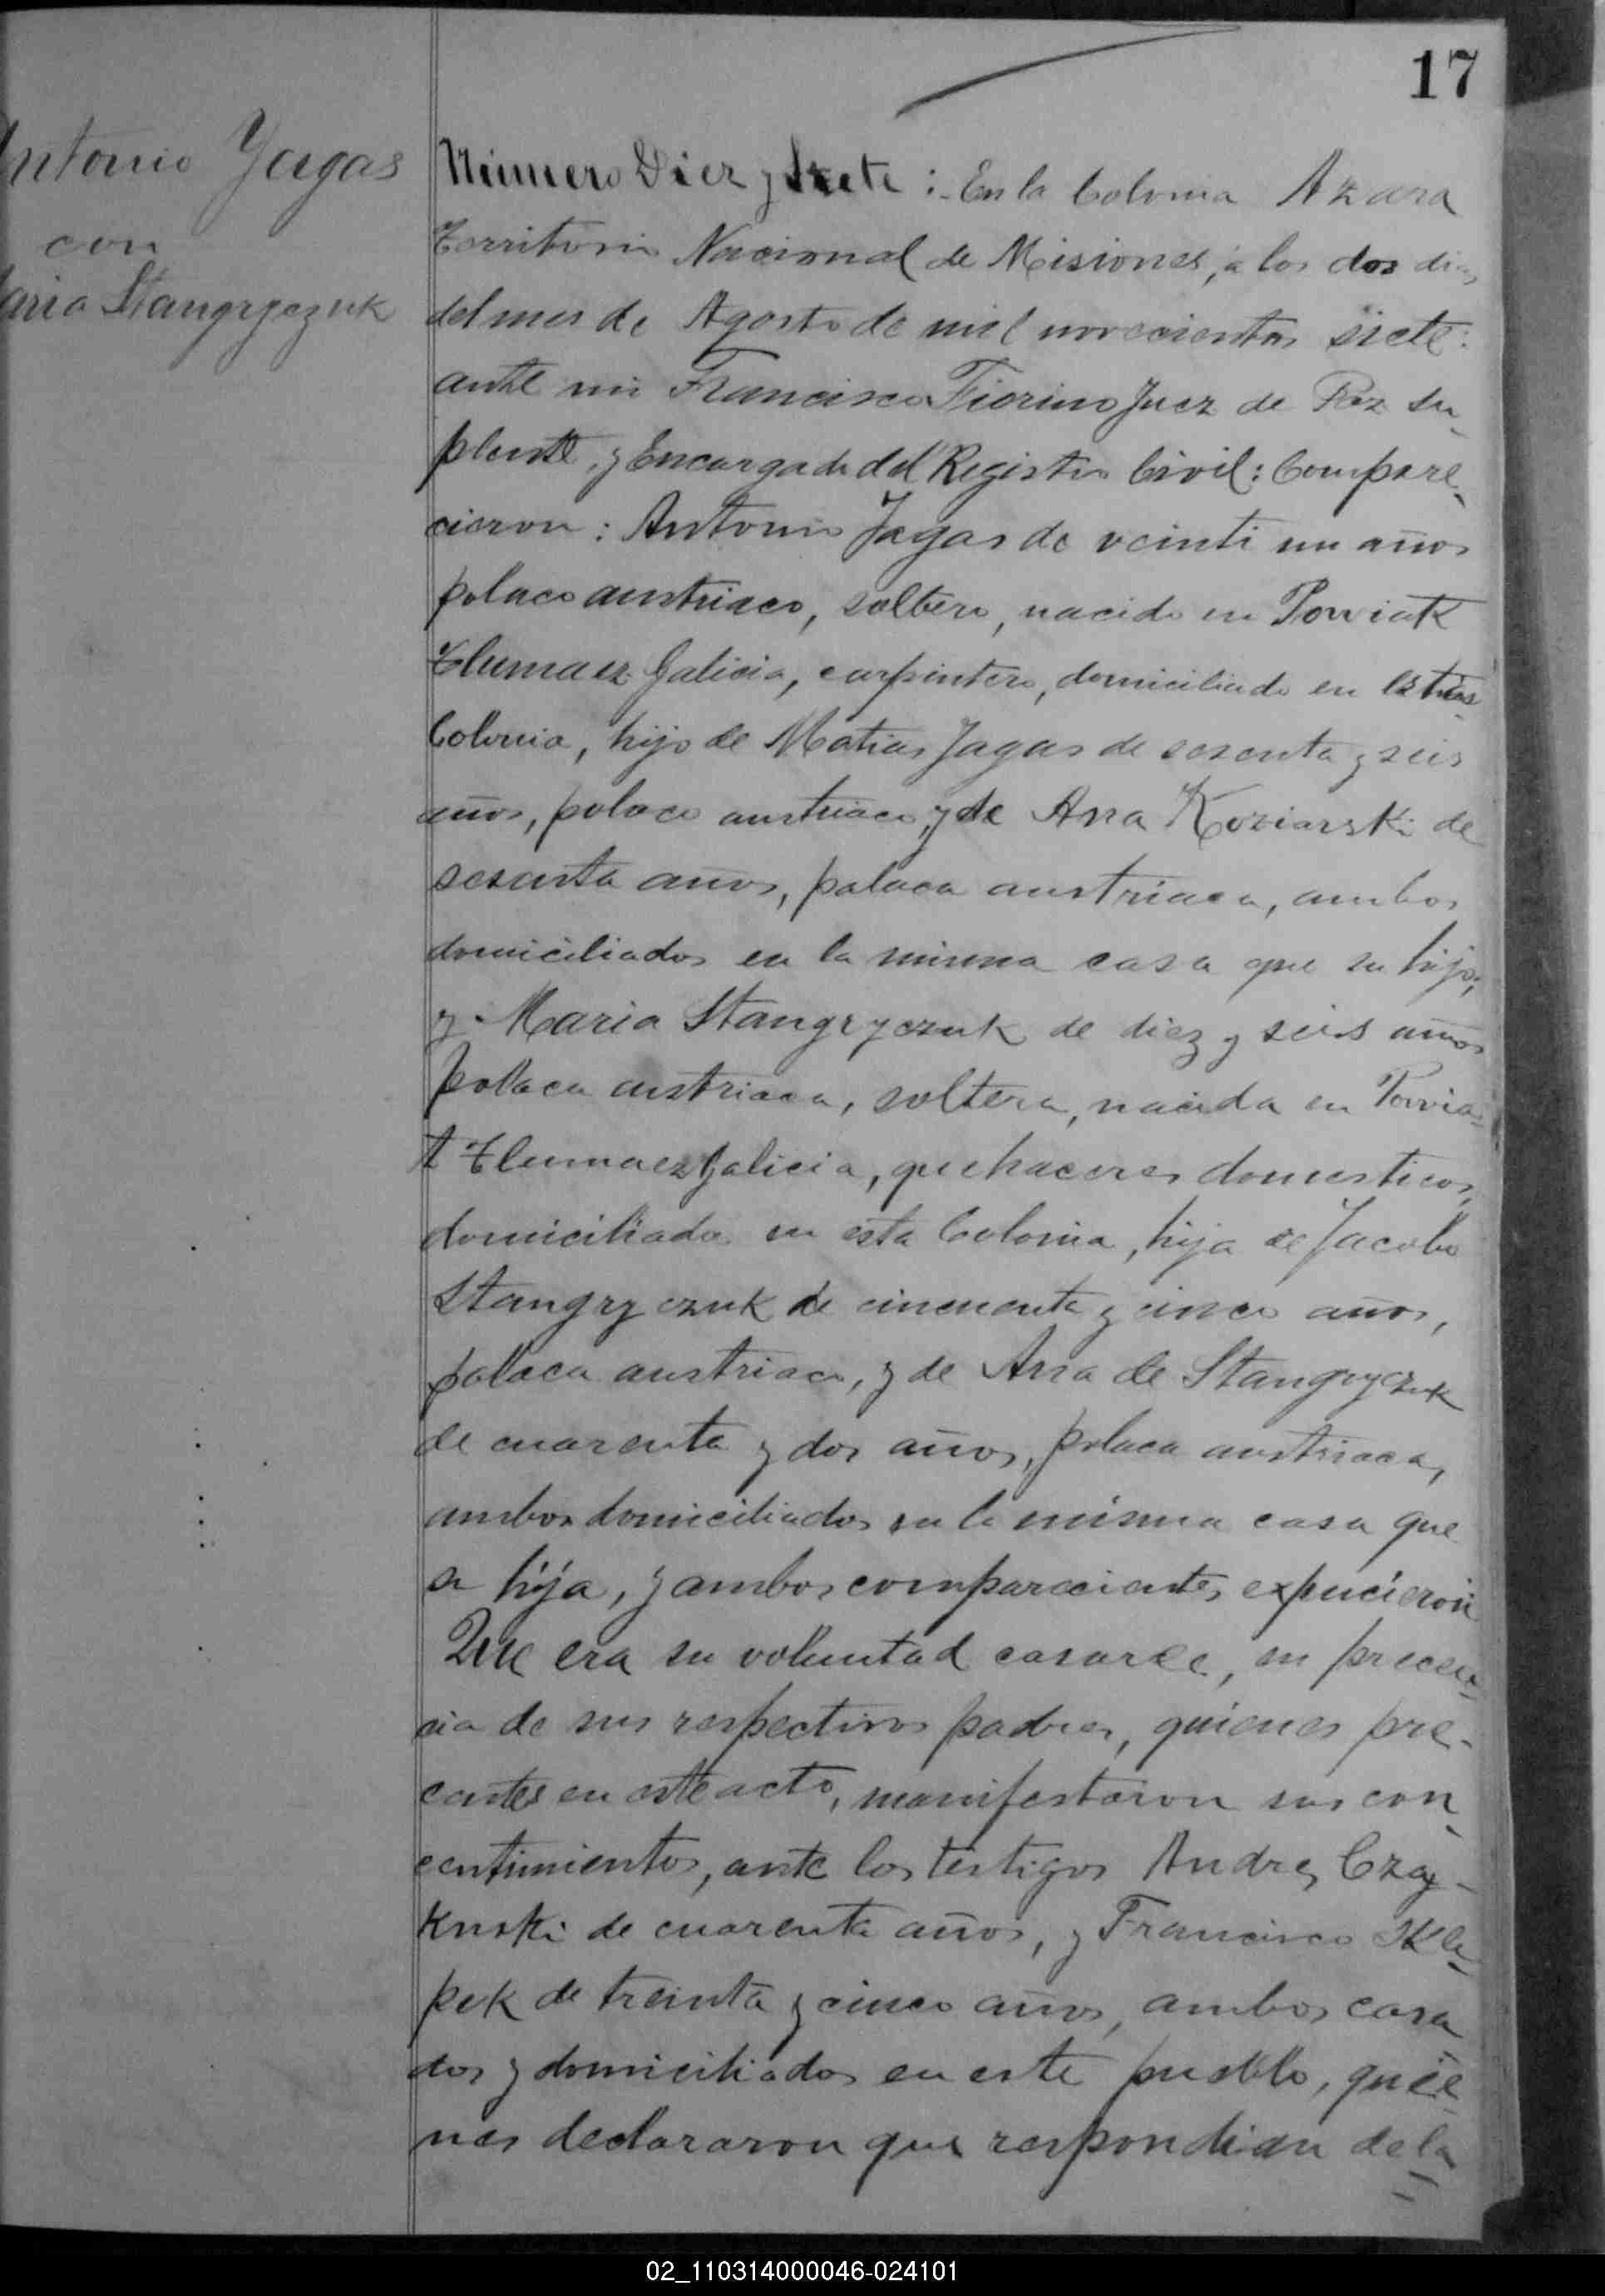 17
Antonio Jagas
con
Maria Stangryczuk
Número Diez y Siete: En la Colonia Azara
Territorio Nacional de Misiones, á los dos dias
del mes de Agosto de mil novecientos siete:
ante mi Francisco Fiorino Juez de Paz su-
plente, y Encargado del Registro Civil: Compare-
cieron: Antonio Jagas de veinti un años
polaco austriaco, soltero, nacido en Powiatk
Tlumaez Galicia, carpintero, domiciliado en
Colonia, hijo de Matias Jagas de sesenta y seis
años, polaco austriaco, y de Ana Koziarski de
sesenta años, polaca austriaca, ambos
domiciliados en la misma casa que su hijo;
y Maria Stangryczuk de diez y seis años
polaca austriaca, soltera, nacida en Powia-
t Tlumaez Galicia, quehaceres domesticos,
domiciliada en esta Colonia, hija de Jacobo
Stangryczuk de cincuenta y cinco años,
polaco austriaco, y de Ana de Stangryczuk
de cuarenta y dos años, polaca austriaca,
ambos domiciliados en la misma casa que
su hija, y ambos comparecientes expucieron
Que era su voluntad casarse, en precen-
cia de sus respectivos padres, quienes pre-
centes en este acto, manifestaron sus con-
centimientos, ante los testigos Andres Czay-
kuski de cuarenta años, y Francisco Skle-
pek de treinta y cinco años, ambos casa-
dos y domiciliados en este pueblo, quie-
nes declararon que respondian de la
02_110314000046-024101